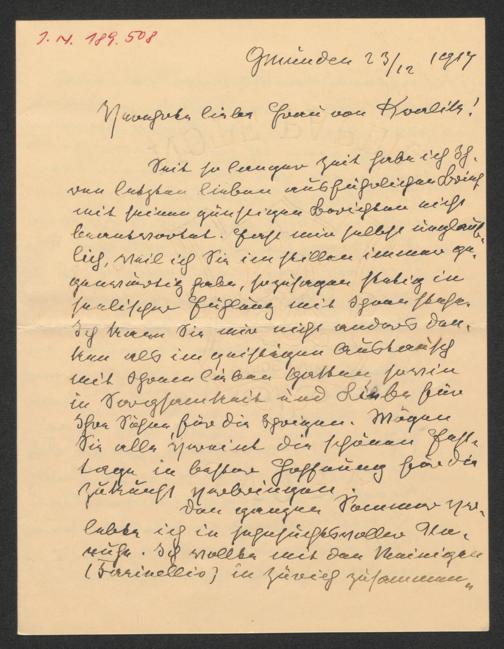 I. N. 189.508
Gmünden 23/12 1917
Verehrte liebe Frau von Kralik!
Seit so langer Zeit habe ich Ih-
ren letzten lieben ausführlichen Brief
mit seinen günstigen Berichten nicht
beantwortet. Fast mir selbst unglaub-
lich, weil ich Sie im stillen immer ge-
genwärtig habe, sozusagen stetig in
seelischer Fühlung mit Ihnen stehe.
Ich kann Sie mir nicht anders den-
ken als im geistigen Austausch
mit Ihrem lieben Gatten sowie
in Sorgsamkeit und Liebe für
Ihre Söhne für die Ihrigen. Mögen
Sie alle vereint die schönen Fest-
tage in bester Hoffnung für die
Zukunft verbringen.
Den ganzen Sommer ver-
lebte ich in sehnsuchtsvoller Un-
ruhe. Ich wollte mit den Meinigen
(Farinellis) in Zürich zusammen-